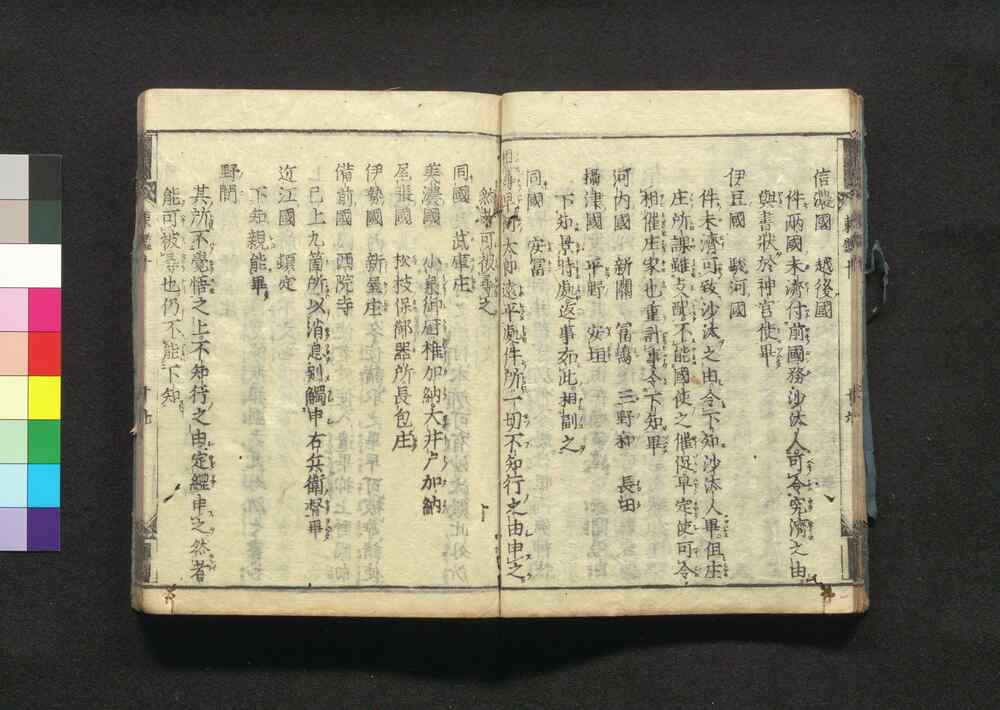 信濃國　越後國
件兩國未濟付前國務沙汰人可令究濟之由
與書狀於神官使畢
伊豆國　駿河國
件未濟可致沙汰之由令下知沙汰人畢但庄
庄所課雖与配不能國使之催促早定使可令
相催庄家也重計事令下知畢
河内國　新開　冨嶋　三野和　長田
攝津國　平野　安垣
下知世特處返事如此相副之
同國　安冨
相尋早河太郎遠平處件所一切不知行之由申之
然者可被尋之
同國　武庫庄
美濃國　小泉御厨椎加納大井戸加納
尾張國　松枝保鄰器所長包庄
伊勢國　新屋庄
備前國　西院寺
已上九箇所以消息到觸申右兵衛督畢
近江國　頓定
下知親能畢
野間
其所不覺悟之上不知行之由定經申之然者
能可被尋也仍不能下知